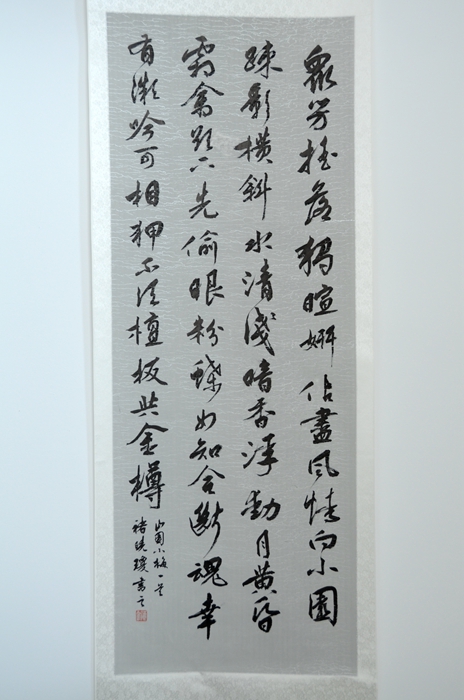 眾芳搖落獨暄妍佔盡風情向小園
疎影橫斜水清淺暗香浮動月黃昏
霜禽欲下先偷眼粉蝶如知合斷魂幸
有微吟可相狎不須檀板共金樽
山園小梅一首
褚曉瓊書之